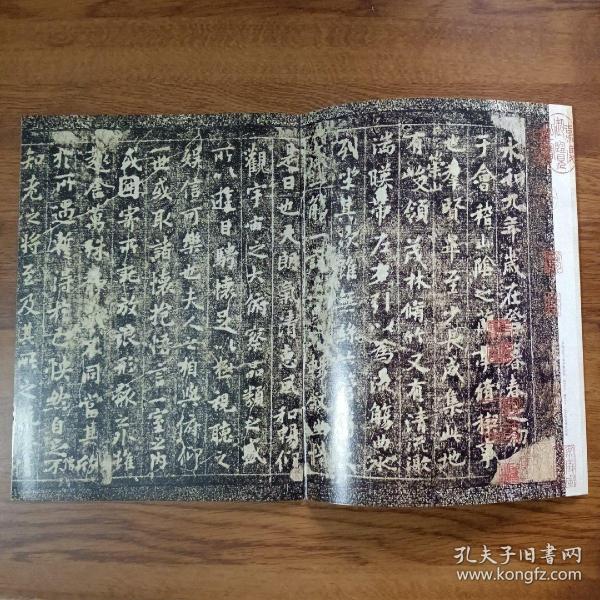 永和九年歲在癸 暮春之初
于會稽山陰之蘭亭脩稧事
也羣賢畢至少長咸集此地
有峻領茂林脩竹又有清流激
湍暎帶左右引以為流觴曲水
列坐其次雖無絲
觴一 敘幽情
是日也天朗氣清惠風和暢仰
觀宇宙之大俯察品類之盛
所以遊目騁懷足以極視聽之
娛信可樂也夫人之相與俯仰
一世或取諸懷抱悟言一室之內
或因寄所託放浪形骸之外雖
趣舍萬殊 不同當其欣
於所遇暫得於己快然自足不
知老之將至及其所之
孔夫子旧书网
www.kongfz.com